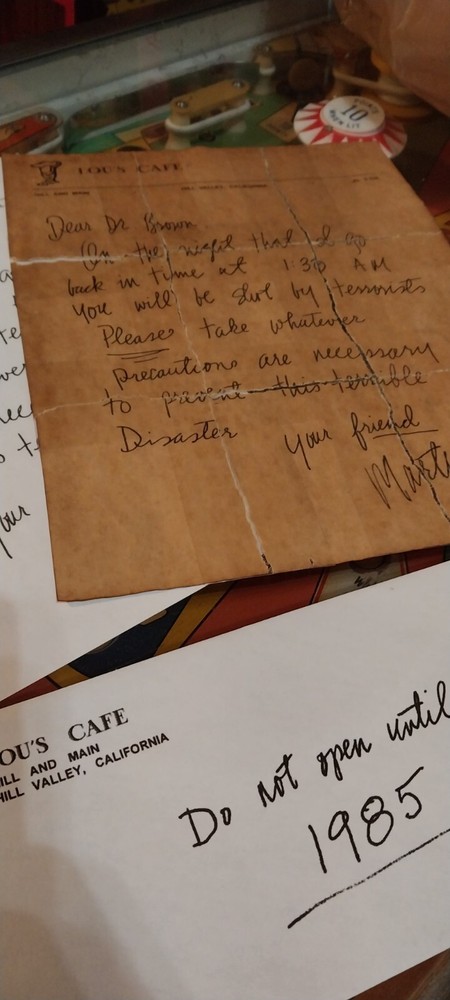 LOU'S CAFE
HILL VALLEY, CALIFORNIA
Dear Dr Brown
On the night that I go
back in time at 1:30 AM
you will be shot by terrorists
Please take whatever
precautions are necessary
to prevent this terrible
Disaster
your friend
Mart
your
10
OU'S CAFE
ILL AND MAIN
HILL VALLEY, CALIFORNIA
Do not open until
1985